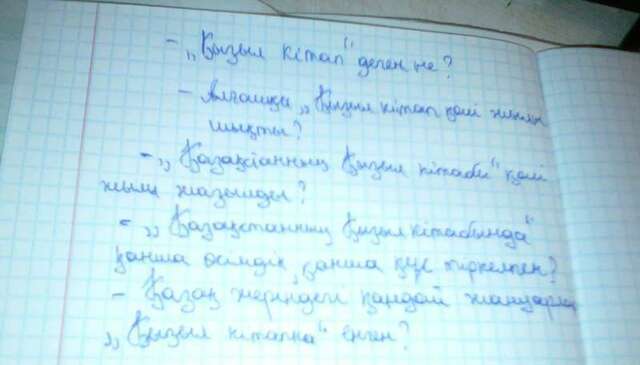 - „Қызыл кітап" деген не?
- Алғашқы „Қызыл кітап қай жылы
шықты?
- „Қазақстанның Қызыл кітабы" қай
жылы жазылды?
- „Қазақстанның Қызыл кітабында"
қанша өсімдік, қанша құс тіркелген?
- Қазақ жеріндегі қандай жануарлар
„Қызыл кітапқа" енген?